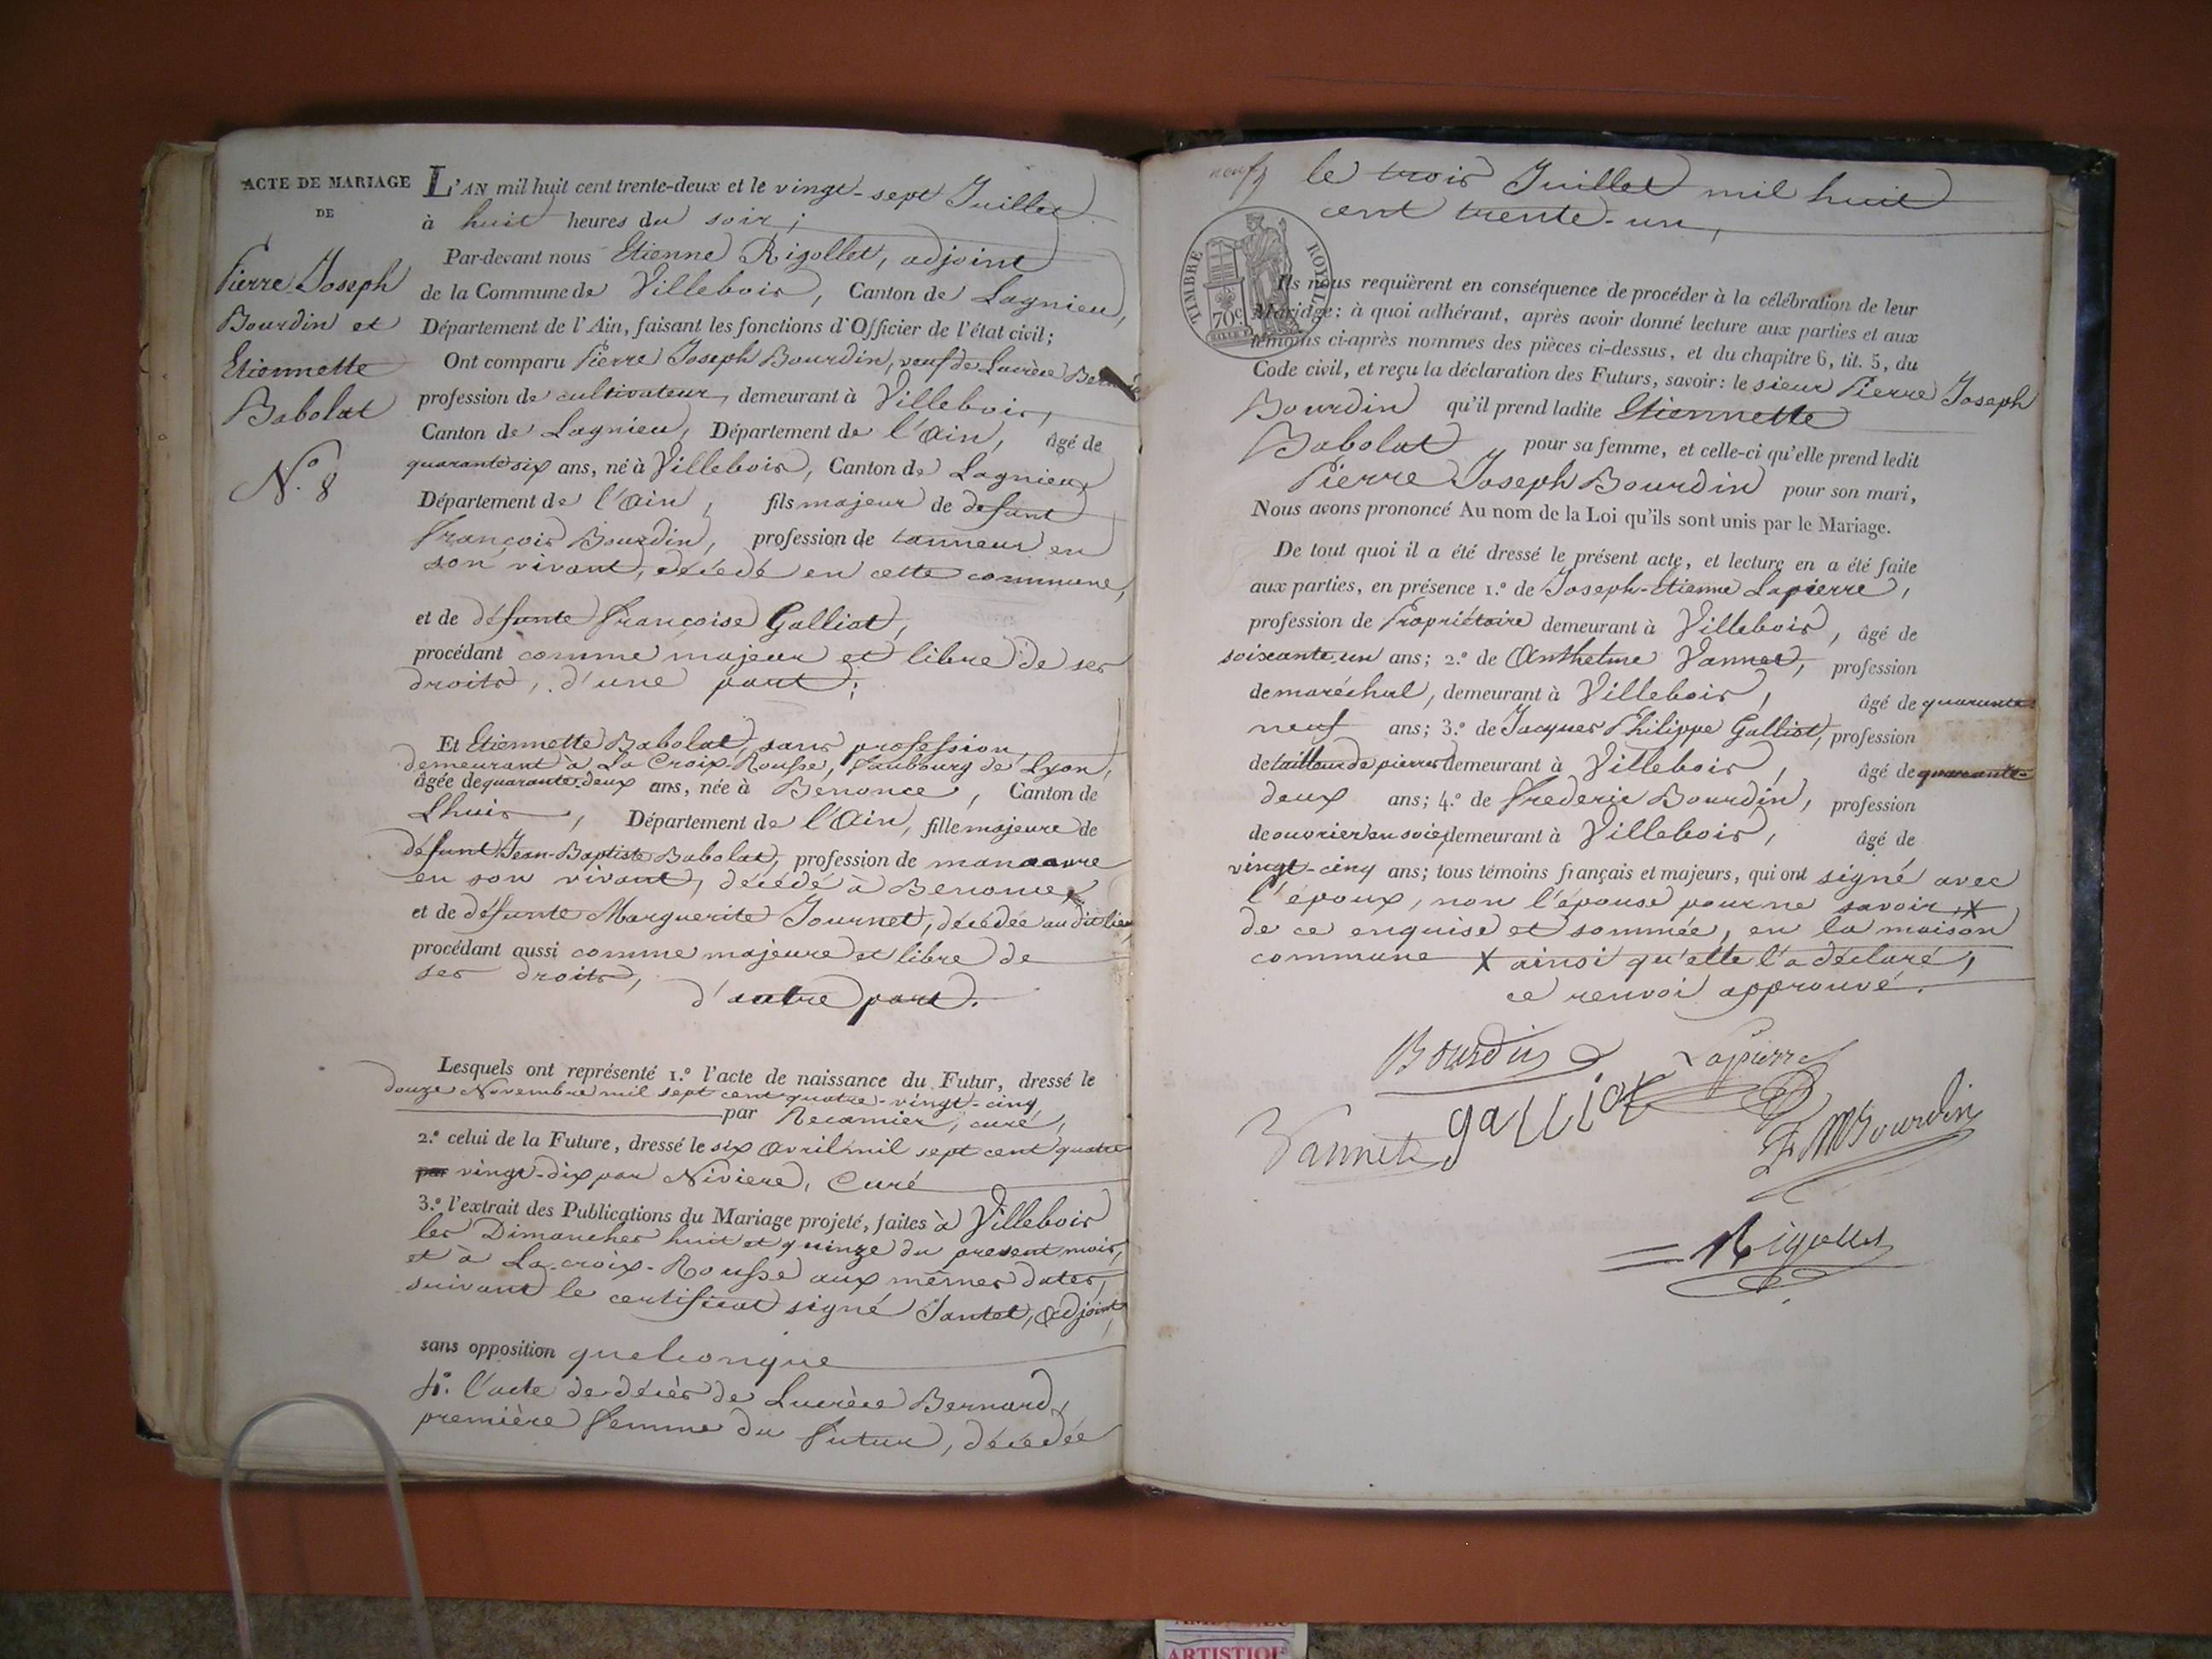 ACTE DE MARIAGE
DE
Pierre Joseph
Bourdin et
Etiennette
Babolat
N.º 8
L'AN mil huit cent trente-deux et le vingt-sept Juillet
à huit heures du soir ;
Par-devant nous Etienne Rigollet, adjoint
de la Commune de Villebois, Canton de Lagnieu,
Département de l'Ain, faisant les fonctions d'Officier de l'état civil;
Ont comparu Pierre Joseph Bourdin, veuf de Lucrèce
profession de cultivateur, demeurant à Villebois,
Canton de Lagnieu, Département de l'Ain, âgé de
quarante six ans, né à Villebois, Canton de Lagnieu,
Département de l'Ain, fils majeur de défunt
François Bourdin, profession de tanneur en
son vivant, décédé en cette commune,
et de défunte Françoise Galliot,
procédant comme majeur et libre de ses
droits, d'une part ;
Et Etiennette Babolat, sans profession,
demeurant à La Croix-Rousse, faubourg de Lyon,
âgée de quarante-deux ans, née à Benonce, Canton de
Lhuis, Département de l'Ain, fille majeure de
défunt Jean-Baptiste Babolat, profession de manœuvre
en son vivant, décédé à Benonce,
et de défunte Marguerite Journet, décédée au dit lieu,
procédant aussi comme majeure et libre de
ses droits,
d'autre part.
Lesquels ont représenté 1.º l'acte de naissance du Futur, dressé le
douze Novembre mil sept cent quatre-vingt-cinq
par Recamier, curé,
2.º celui de la Future, dressé le six Avril mil sept cent quatre
par vingt-dix par Niviere, Curé
3.º l'extrait des Publications du Mariage projeté, faites à Villebois
les Dimanches huit et quinze du present mois,
et à La croix-Rousse aux mêmes dates,
suivant le certificat signé Jantet, Adjoint,
sans opposition quelconque
4º. l'acte de décès de Lucrèce Bernard,
première femme du futur, décédée
neuf
le trois Juillet mil huit
cent trente-un,
TIMBRE ROYAL
70c
Ils nous requièrent en conséquence de procéder à la célébration de leur
Mariage; à quoi adhérant, après avoir donné lecture aux parties et aux
témoins ci-après nommes des pièces ci-dessus, et du chapitre 6, tit. 5, du
Code civil, et reçu la déclaration des Futurs, savoir: le sieur Pierre Joseph
Bourdin qu'il prend ladite Etiennette
Babolat pour sa femme, et celle-ci qu'elle prend ledit
Pierre Joseph Bourdin pour son mari,
Nous avons prononcé Au nom de la Loi qu'ils sont unis par le Mariage.
De tout quoi il a été dressé le présent acte, et lecture en a été faite
aux parties, en présence 1.º de Joseph-Etienne Lapierre,
profession de Propriétaire demeurant à Villebois, âgé de
soixante un ans; 2.º de Anthelme Vannet, profession
de maréchal, demeurant à Villebois, âgé de quarante
neuf ans; 3.º de Jacques Philippe Galliot, profession
de tailleur de pierres demeurant à Villebois, âgé de quarante-
deux ans; 4.º de Frederic Bourdin, profession
de ouvrier en soie, demeurant à Villebois, âgé de
vingt-cinq ans; tous témoins français et majeurs, qui ont signé avec
l'époux, non l'épouse pour ne savoir, X
de ce enquise et sommée, en la maison
commune X ainsi qu'elle l'a déclaré,
ce renvoi approuvé.
Bourdin Lapierre
Vannet galliot F Bourdin
Rigollet
ARTISTIQUE